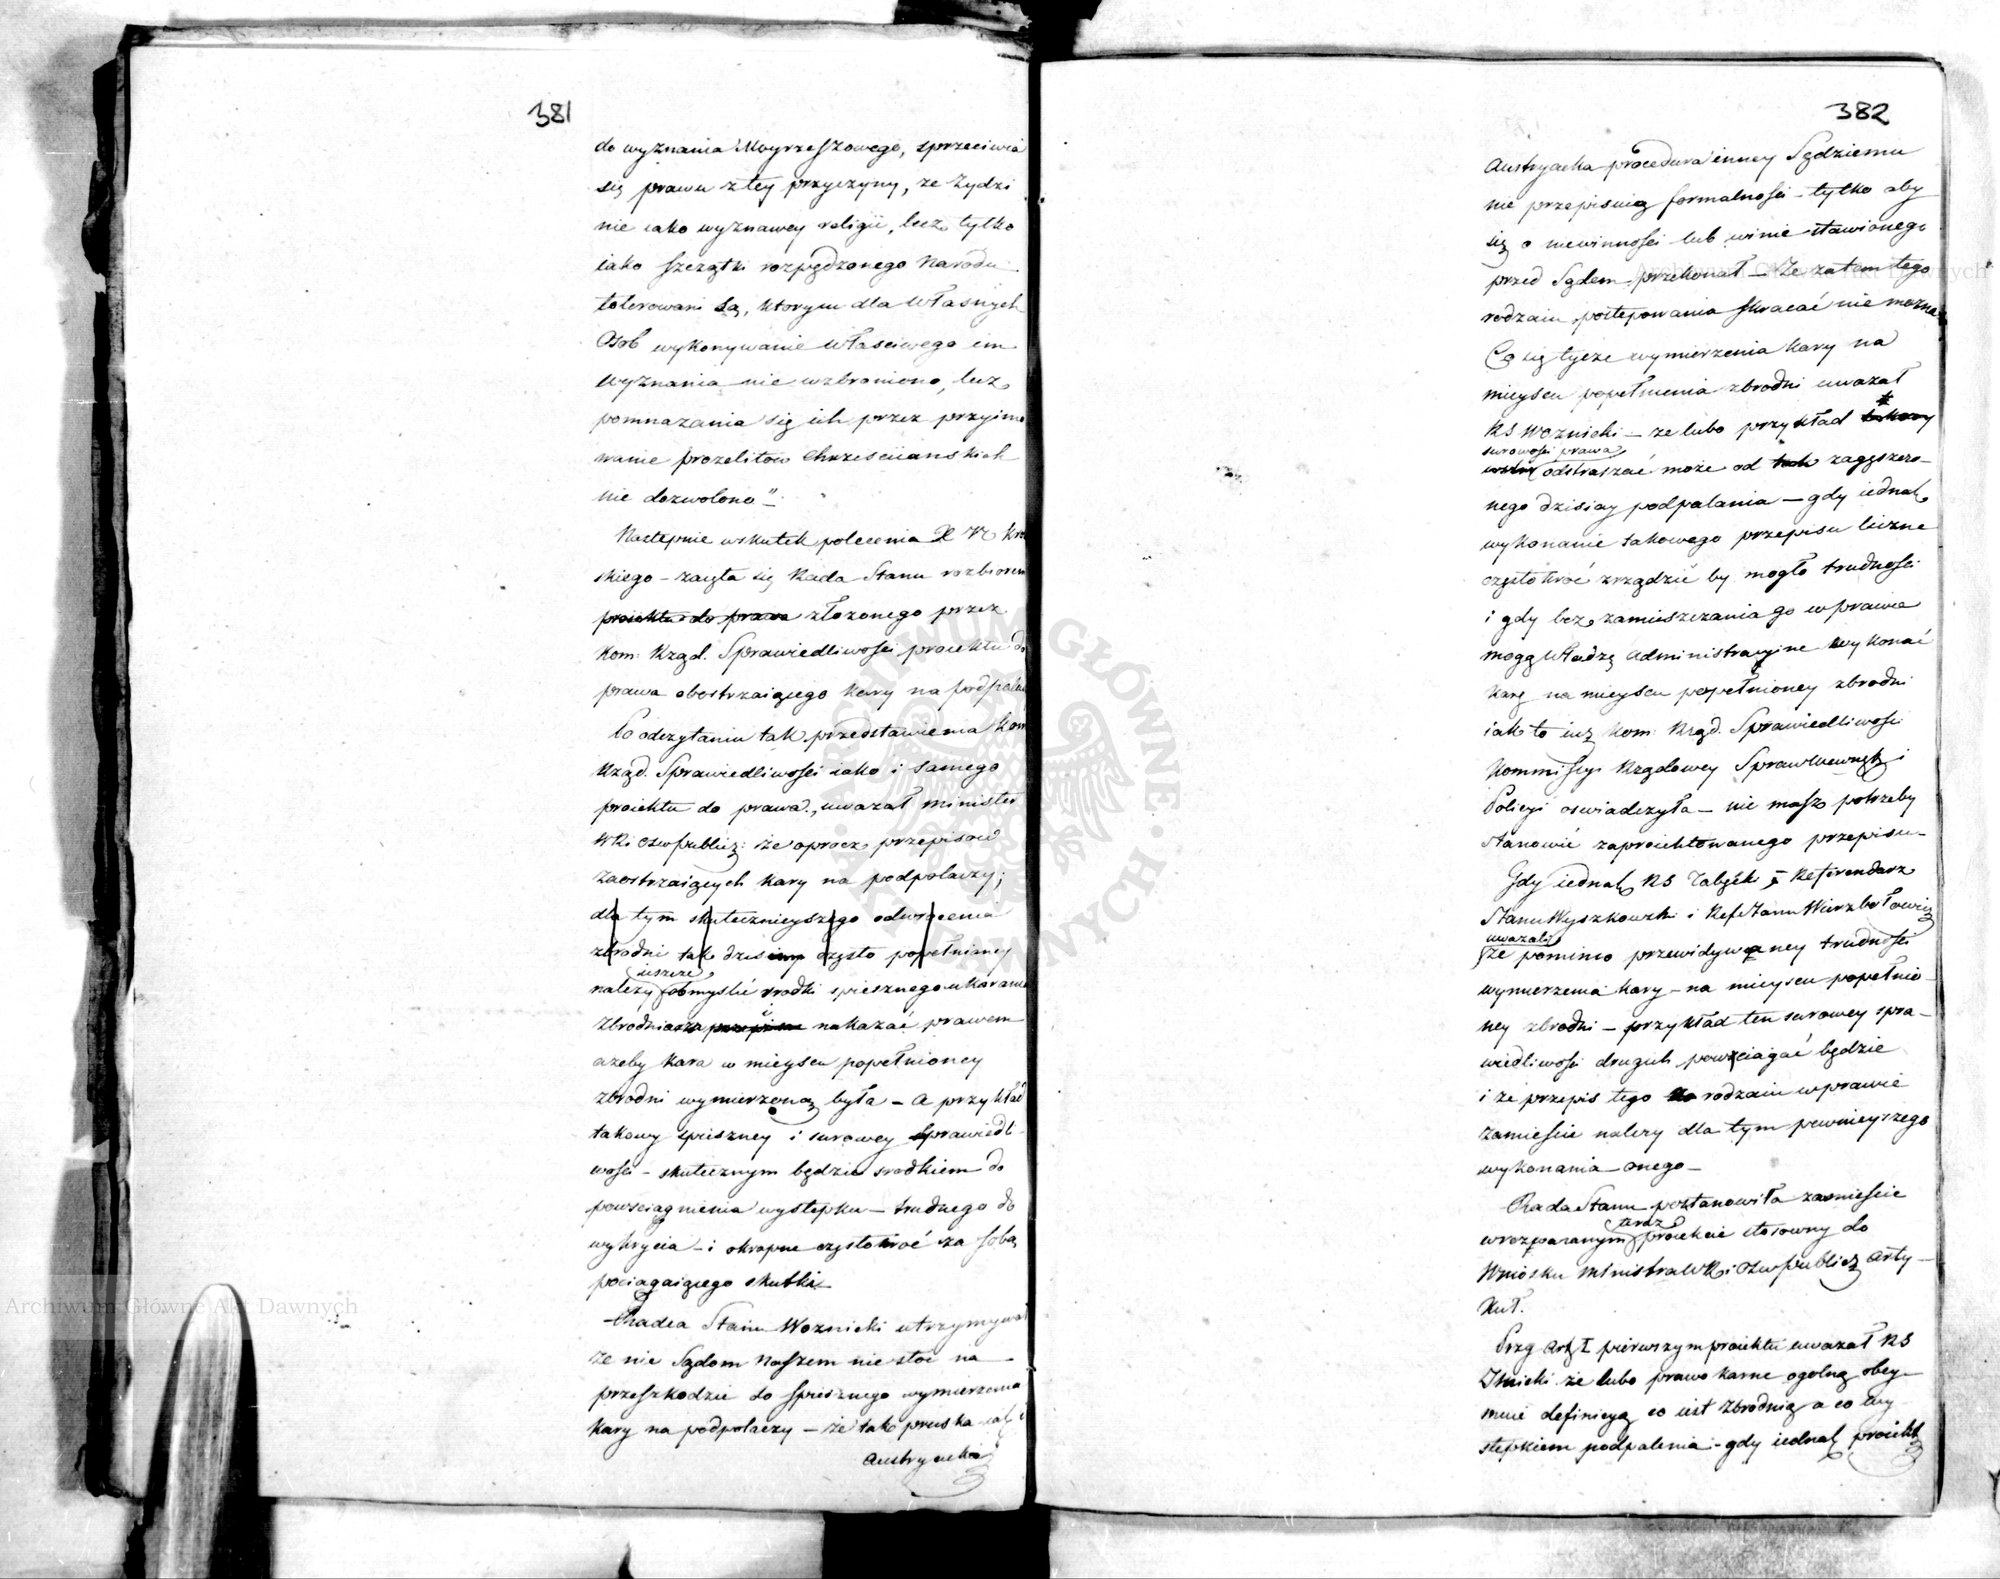 381
do wyznania Moyrzeszowego, sprzeciwia
się prawu z tey przyczyny, ze Zydzi
nie iako wyznawcy religii, lecz tylko
iako szczątki rozpędzonego Narodu
tolerowani są, ktorym dla własnych
Osob wykonywanie właściwego im
wyznania nie wzbroniono, lecz
pomnazania się ich przez przyimo
wanie prozelitow Chrzesciianskich
nie dozwolono"
Następnie wskutek polecenia X W Kró
skiego – zaięła się Rada Stanu rozbiorem
proiektu do prawa złożonego przez
Kom: Rząd. Sprawiedliwości proiektu do
prawa obostrzaiącego kary na podpala
Po odczytaniu tak przedstawienia Kom
Rząd. Sprawiedliwości iako i samego
proiektu do prawa, uwazał Minister
WRi Oswpublicz: że oprocz przepisow
zaostrzaiących kary na podpalaczy;
dla tym skutecznieyszego odwrócenia
zbrodni tak dzisiay często popełnioney
ieszcze
należy obmyślić srodki spiesznego ukarania
Zbrodniarza nakazać prawem
azeby kara w mieyscu popełnioney
zbrodni wymierzoną była – a przykład
takowy spieszney i surowey Sprawiedl
wości – skutecznym będzie srodkiem do
powsciągnienia występku – trudnego do
wykrycia – i okropne częstokroć za sobą
pociągaiącego skutki
Radca Stanu Woznicki utrzymywał
że nie Sądom Naszem nie stoi na
przeszkodzie do spiesznego wymierzenia
kary na podpalaczy – że tak pruska iak i
Austryacka
382
Austryacka procedura inney Sędziemu
nie przepisuią formalności – tylko aby
się o niewinności lub winie stawionego
przed Sądem przekonał – Że zatem tego
rodzaiu postępowania skracać nie można
Co się tycze wymierzenia kary na
mieyscu popełnienia zbrodni uwazał
RS Woznicki – ze lubo przykład takowy
surowości prawa
odstraszać może od tak zagęszczo-
nego dzisiay podpalania – gdy iednak
wykonanie takowego przepisu liczne
częstokroć zrządzić by mogło trudności
i gdy bez zamieszczania go w prawie
mogą Władze Administracyine wykonać
karę na mieyscu popełnioney zbrodni
iak to iuż Kom: Rząd. Sprawiedliwości
Kommissyi Rządowey Spraw Wewnętr i
Policyi oswiadczyła – nie masz potrzeby
stanowić zaproiektowanego przepisu –
Gdy iednak RS Zabęcki i Referendarz
Stanu Wyszkowski i Ref Stanu Wierzbołowicz
uwazali
że pomimo przewidywaney trudności
wymierzenia kary – na mieyscu popełnio
ney zbrodni – przykład ten surowey spra-
wiedliwości drugich powsciągać będzie
i że przepis tego rodzaiu w prawie
zamieście nalezy dla tym pewnieyszego
wykonania onego –
Rada Stanu postanowiła zamieście
teraz
w rozpoznanym proiekcie stosowny do
Wniosku Ministra WRi Oswpublicz Arty-
kuł.
Przy Art I pierwszym proiektu uwazał RS
że lubo prawo karne ogolną obey-
muie definicyą co iest Zbrodnią a co wy
stępkiem podpalenia – gdy iednak proiekt
Archiwum Główne Akt Dawnych
Archiwum Główne Akt Dawnych
ARCHIWUM GŁÓWNE AKT DAWNYCH